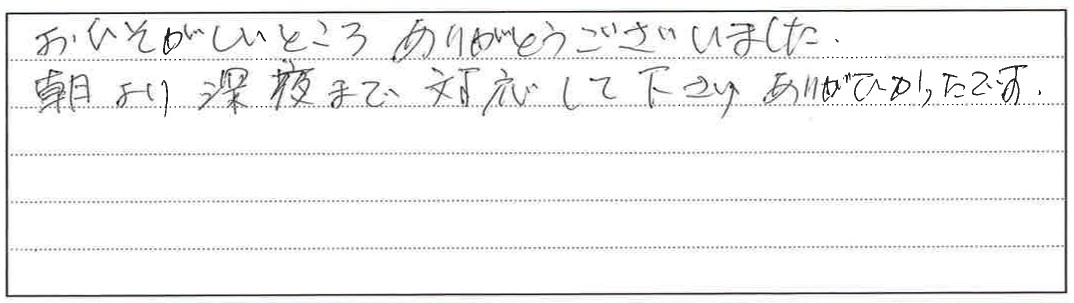 おいそがしいところ ありがとうございました.
朝より 深夜まで 対応して下さり ありがたかったです.